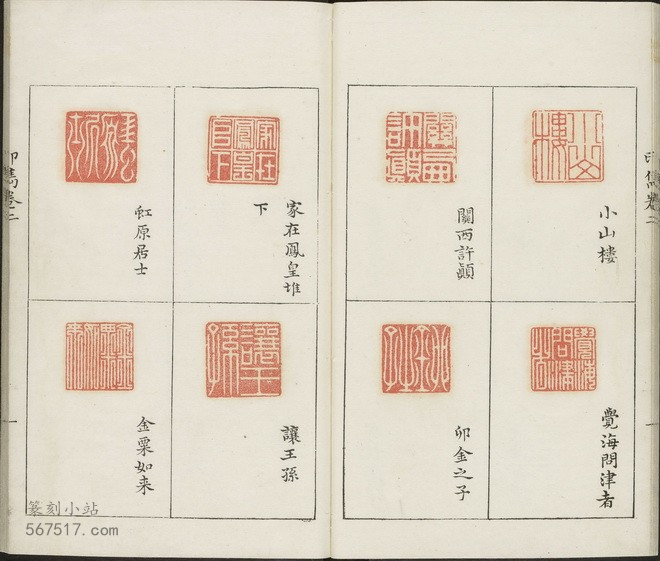 印雋卷二
小山樓
關西許顛
覺海問津者
卯金之子
家在鳳皇堆
下
虹原居士
讓王孫
金粟如来
印雋卷二
一
篆刻小站
567517.com